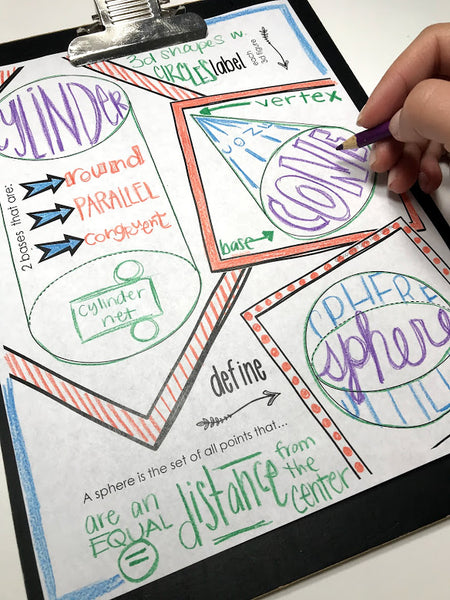 3d shapes w.
CIRCLES label
each
3d figure
CYLINDER
2 bases that are:
round
PARALLEL
congruent
cylinder
net
vertex
CONE
CONE
base
SPHERE
sphere
define
A sphere is the set of all points that...
are an
EQUAL
distance
from
the
center